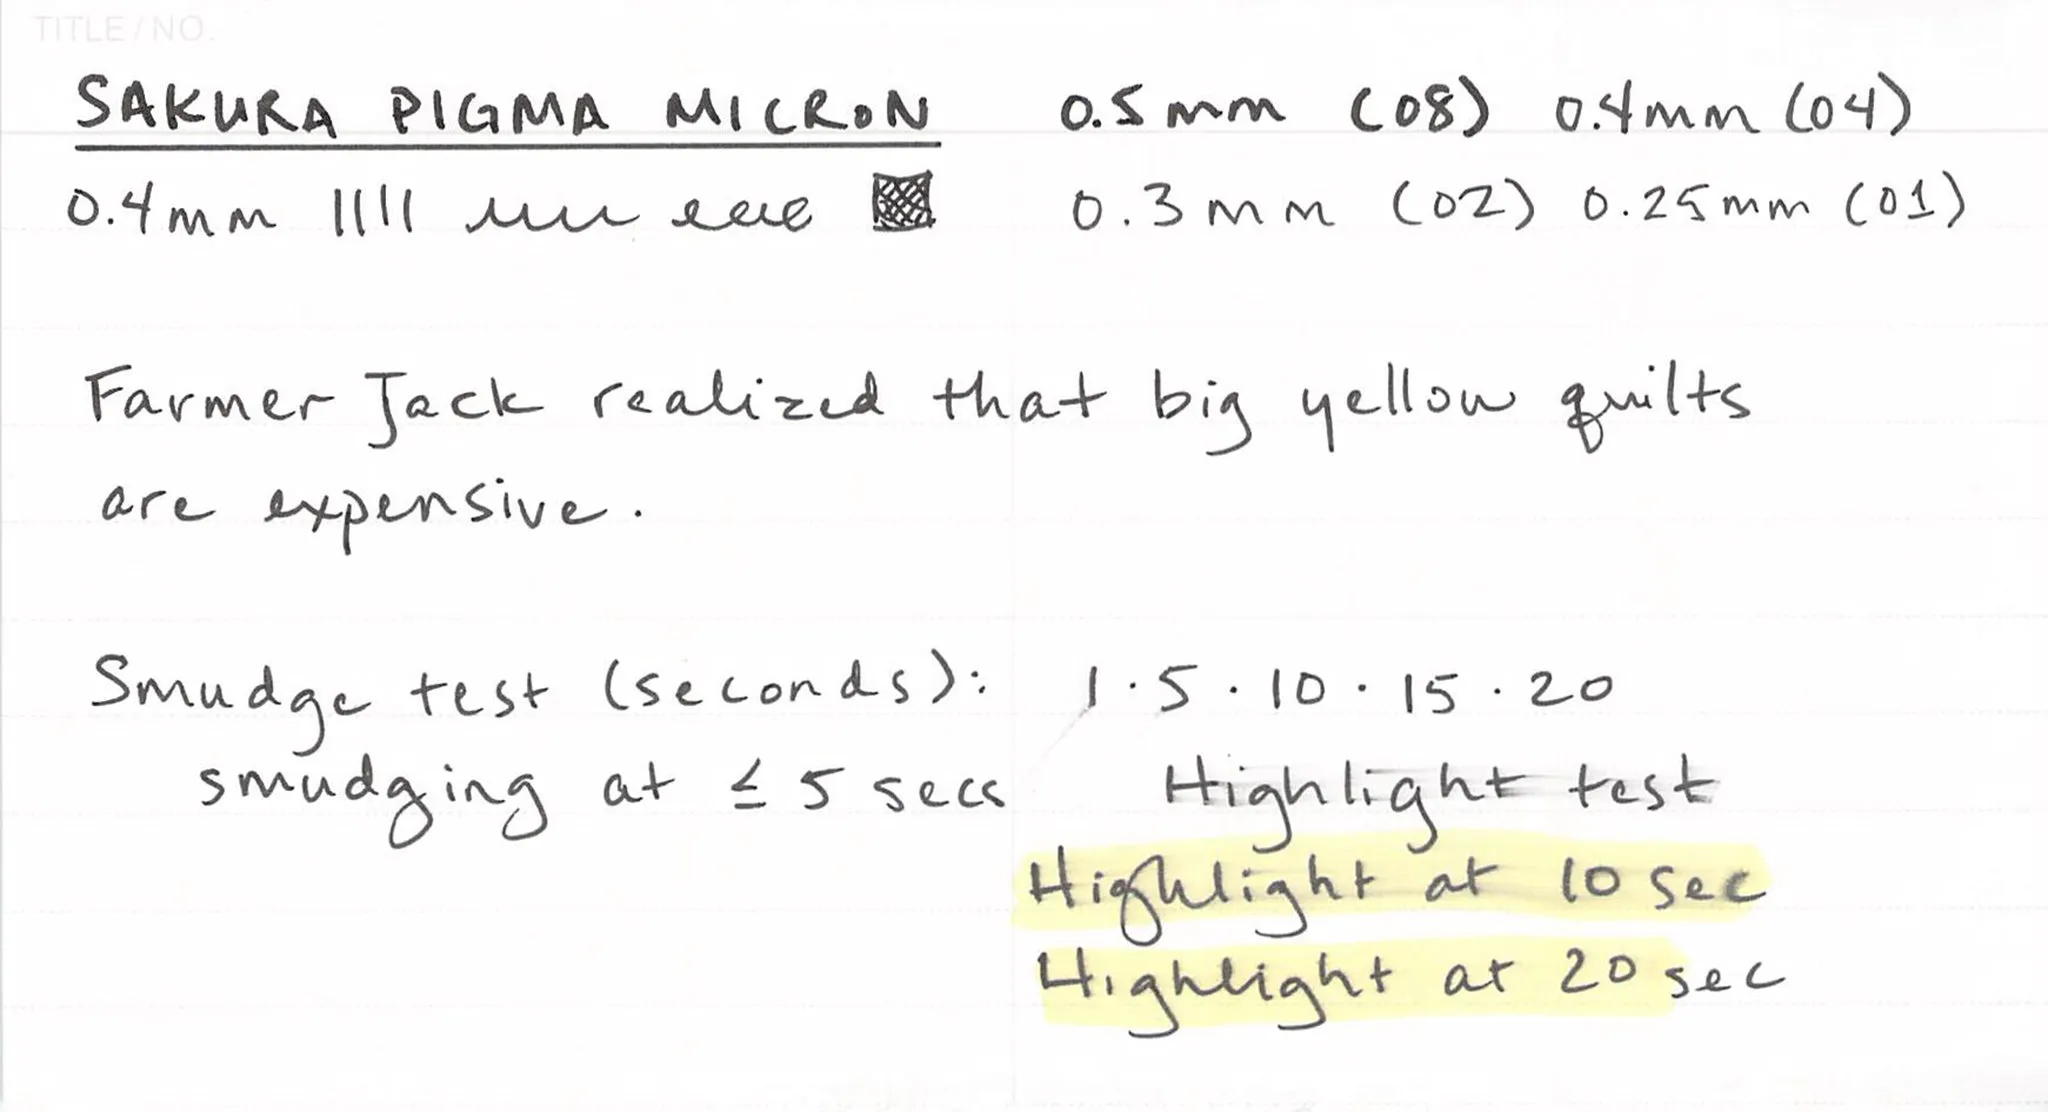 TITLE/NO.
SAKURA PIGMA MICRON 0.5mm (08) 0.4mm (04)
0.4mm 0.3mm (02) 0.25mm (01)
Farmer Jack realized that big yellow quilts
are expensive.
Smudge test (seconds): 1 · 5 · 10 · 15 · 20
smudging at ≤ 5 secs Highlight test
Highlight at 10 sec
Highlight at 20 sec